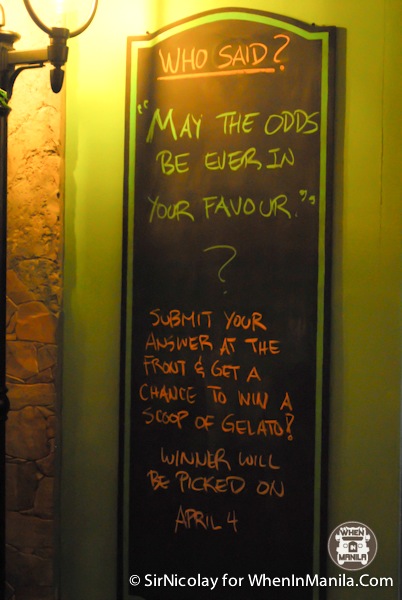 WHO SAID?
"MAY THE ODDS
BE EVER IN
YOUR FAVOUR."
?
SUBMIT YOUR
ANSWER AT THE
FRONT & GET A
CHANCE TO WIN A
SCOOP OF GELATO!
WINNER WILL
BE PICKED ON
APRIL 4
WHEN
IN
MANILA
© SirNicolay for WhenInManila.Com